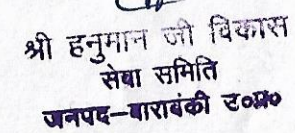 श्री हनुमान जी विकास
सेवा समिति
जनपद-बाराबंकी उ०प्र०